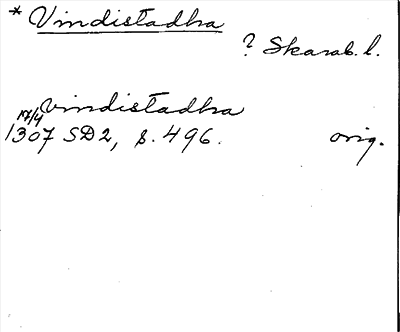 * Vindistadha
? Skarab. l.
vindistadha
17/4
1307 SD2, s. 496. orig.